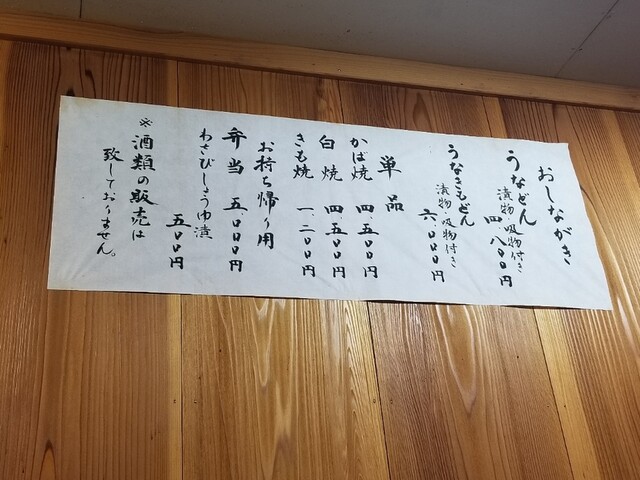 おしながき
うなどん
漬物・吸物付き
四、八〇〇円
うなきもどん
漬物・吸物付き
六、〇〇〇円
単品
かば焼 四、五〇〇円
白焼 四、五〇〇円
きも焼 一、二〇〇円
お持ち帰り用
弁当 五、〇〇〇円
わさびしょうゆ漬
五〇〇円
※酒類の販売は
致しておりません。